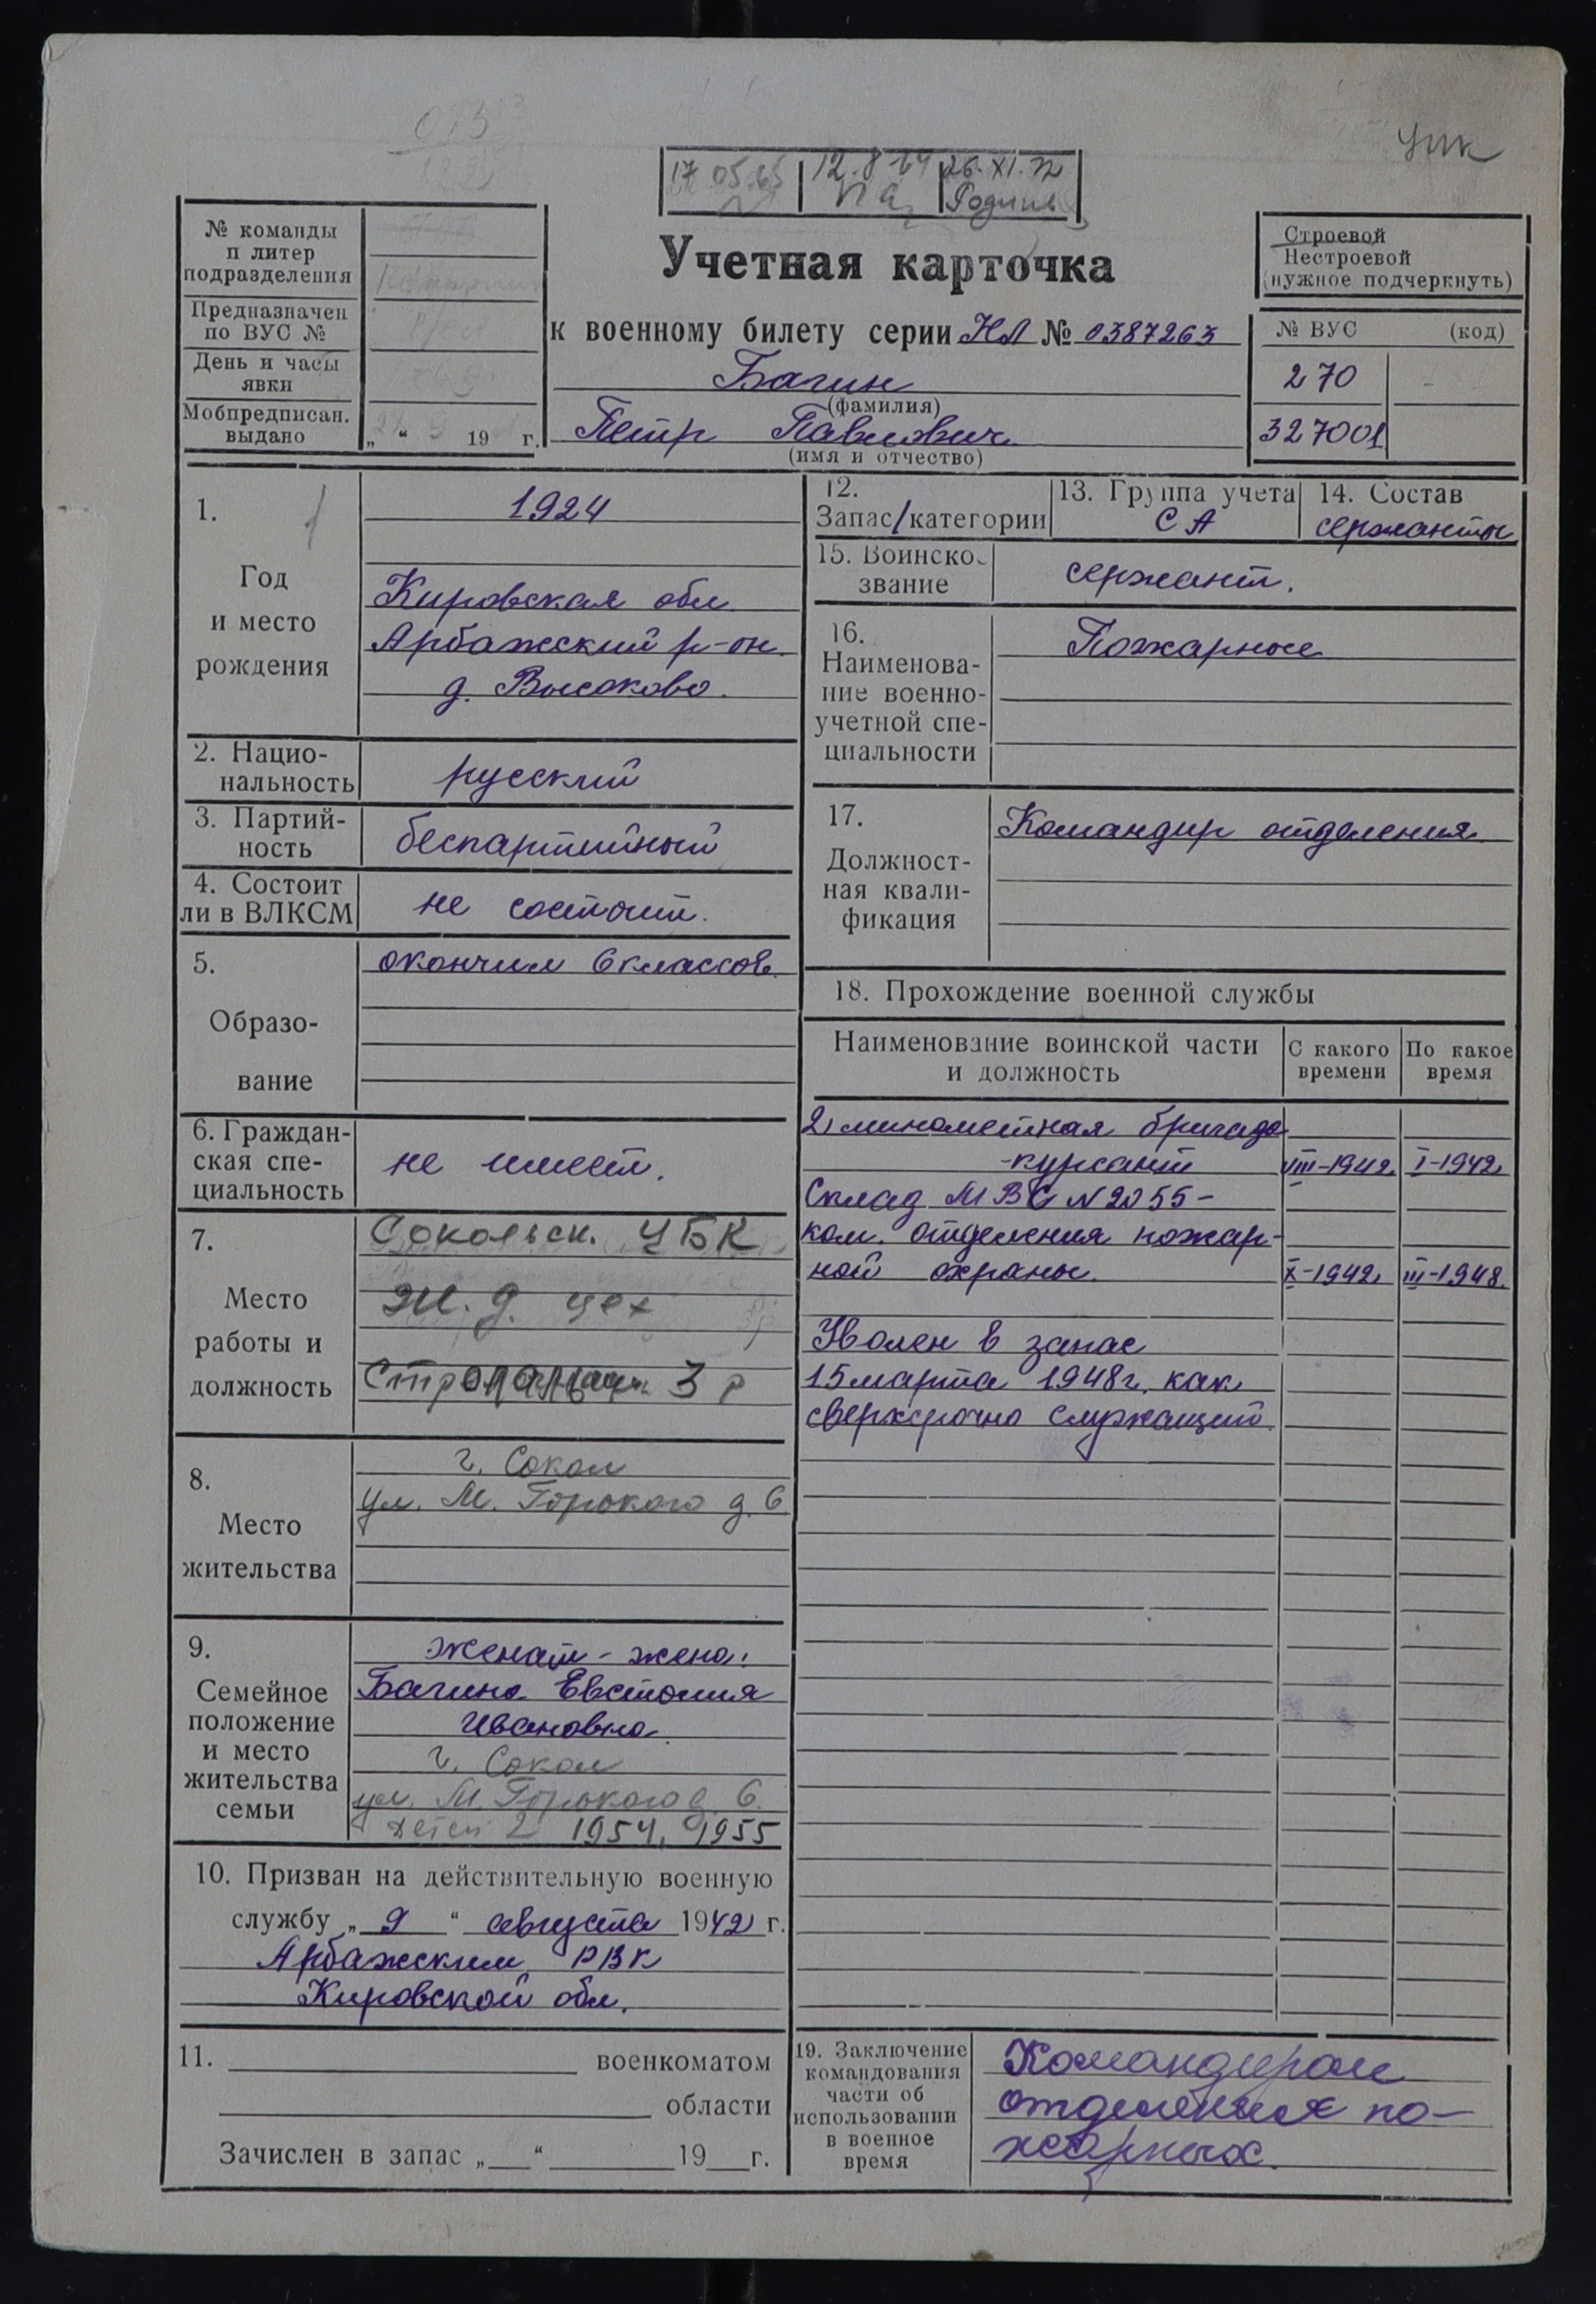 Учетная карточка
к военному билету серии НЛ № 0387263
Багин
(фамилия)
Петр Павлович
(имя и отчество)
№ команды
п литер
подразделения
Предназначен
по ВУС №
День и часы
явки
Мобпредписан.
выдано
„ “ 19 г.
17 05.65
12.8
26.XI.72
Строевой
Нестроевой
(нужное подчеркнуть)
№ ВУС (код)
270
327001
1.
Год
и место
рождения
1924
Кировская обл
Арбажский р-он.
д. Высоково.
2. Нацио-
нальность
русский
3. Партий-
ность
беспартийный
4. Состоит
ли в ВЛКСМ
не состоит.
5.
Образо-
вание
окончил 6 классов.
6. Граждан-
ская спе-
циальность
не имеет.
7.
Место
работы и
должность
Сокольск. ЦБК
ж.д. цех
3 р
8.
Место
жительства
г. Сокол
ул. М. Горького д. 6
9.
Семейное
положение
и место
жительства
семьи
женат - жена:
Багина Евстолия
Ивановна.
г. Сокол
ул. М. Горького д. 6.
Детей 2 1954, 1955
10. Призван на действительную военную
службу „ 9 “ августа 1942 г.
Арбажским РВК
Кировской обл.
11. военкоматом
области
Зачислен в запас „ “ 19 г.
12.
Запас/категории
13. Группа учета
СА
14. Состав
сержанты
15. Воинско
звание
сержант.
16.
Наименова-
ние военно-
учетной спе-
циальности
Пожарные
17.
Должност-
ная квали-
фикация
Командир отделения.
18. Прохождение военной службы
Наименование воинской части
и должность
С какого
времени
По какое
время
2 минометная бригада
-курсант VIII-1942 I-1942
Склад МВС N2055-
ком. отделения пожар-
ной охраны. X-1942 III-1948.
Уволен в запас
15 марта 1948 г. как
сверхсрочно служащий.
19. Заключение
командования
части об
использовании
в военное
время
Командиром
отделения по-
жарных.